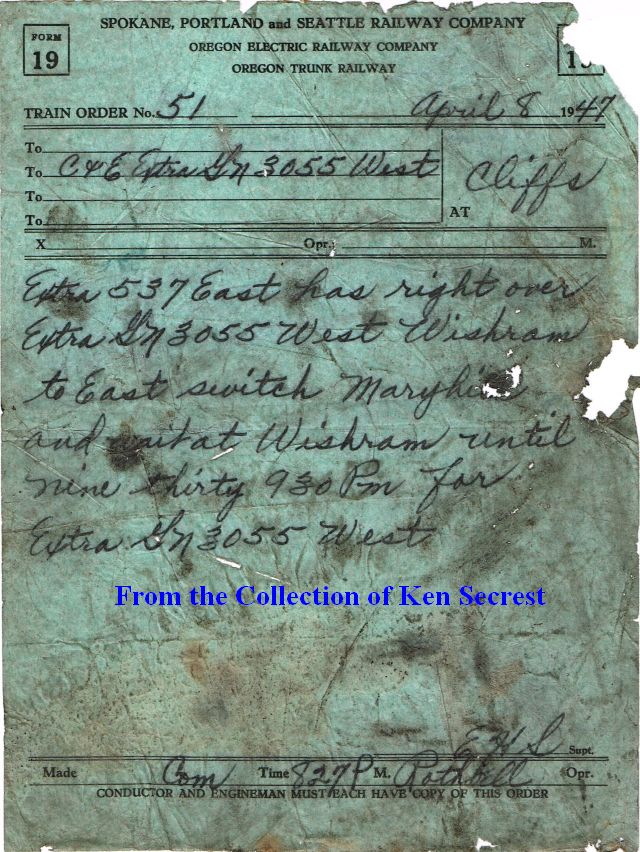 SPOKANE, PORTLAND and SEATTLE RAILWAY COMPANY
FORM 19
OREGON ELECTRIC RAILWAY COMPANY
OREGON TRUNK RAILWAY
TRAIN ORDER No. 51 April 8 1947
To
To C&E Extra GN 3055 West
To
To
Cliffs
AT
X Opr.; M.
Extra 537 East has right over
Extra GN 3055 West Wishram
to East switch Maryhill
and wait at Wishram until
nine thirty 930 Pm for
Extra GN 3055 West
From the Collection of Ken Secrest
E H S Supt.
Made Com Time 827 P M. Opr.
CONDUCTOR AND ENGINEMAN MUST EACH HAVE COPY OF THIS ORDER